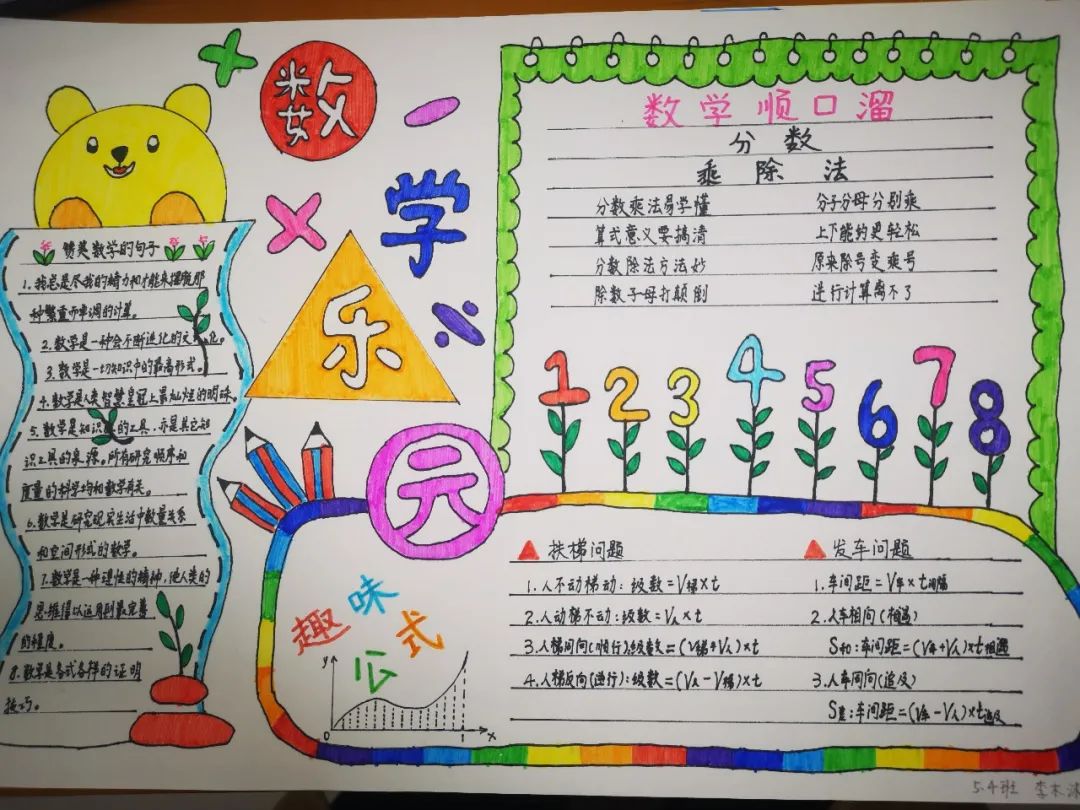 数
学
乐
元
赞美数学的句子
1.我总是尽我的精力和才能来摆脱那
种繁重而单调的计算。
2.数学是一种会不断进化的文化。
3.数学是一切知识中的最高形式。
4.数学是人类智慧皇冠上最灿烂的明珠。
5.数学是知识的工具,亦是其它知
识工具的泉源。所有研究顺序和
度量的科学均和数学有关。
6.数学是研究现实生活中数量关系
和空间形式的数学。
7.数学是一种理性的精神,使人类的
思维得以运用到最完善
的程度。
8.数学是各式各样的证明
技巧。
数学顺口溜
分数
乘除法
分数乘法易学懂 分子分母分别乘
算式意义要搞清 上下能约更轻松
分数除法方法妙 原来除号变乘号
除数子母打颠倒 进行计算离不了
1 2 3 4 5 6 7 8
趣味
公式
y
0 1 x
扶梯问题
1.人不动梯动:级数=V梯×t
2.人动梯不动:级数=V人×t
3.人梯同向(顺行):级数=(V梯+V人)×t
4.人梯反向(逆行):级数=(V人-V梯)×t
发车问题
1.车间距=V车×t间隔
2.人车相向(相遇)
S和:车间距=(V车+V人)×t相遇
3.人车同向(追及)
S差:车间距=(V车-V人)×t追及
5.4班 李木沐